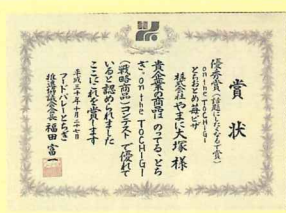 賞状
優秀賞(話題にしたなるで賞)
on the TOCHIGI
とちおとめ苺ピザ
株式会社 やまに大塚 様
貴企業の商品は のってる、とち
ぎ。on the TOCHIGI
(戦略商品)コンテストで優れて
いると認められました
ここにこれを賞します
平成三十年十月二十七日
フードバレーとちぎ
推進協議会会長 福田富一